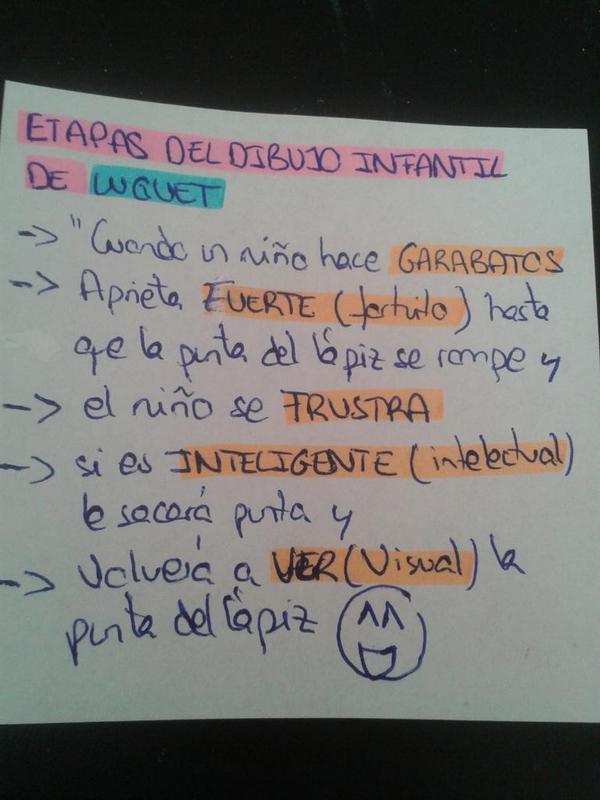 ETAPAS DEL DIBUJO INFANTIL
DE LUQUET
-> "Cuando un niño hace GARABATOS
-> Aprieta FUERTE (fortuito) hasta
que la punta del lápiz se rompe y
-> el niño se FRUSTRA
-> si es INTELIGENTE (intelectual)
le sacará punta y
-> Volverá a VER (Visual) la
punta del lápiz